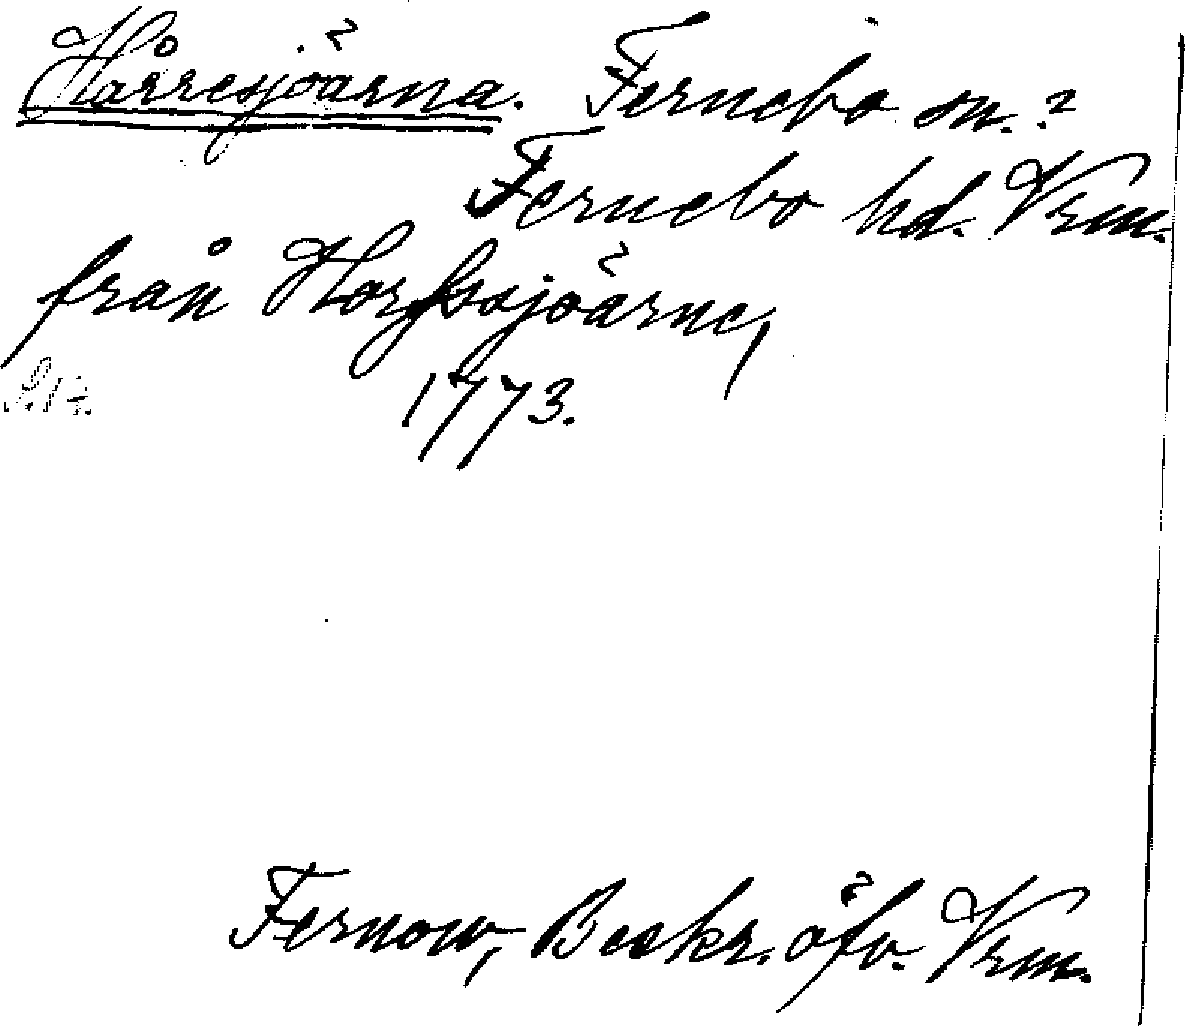 Hårresjöärna. Fernebo sn.?
Fernebo hd. Vrm.
från Horfssjöärne,
1773.
Fernow, Beskr. öfv. Vrm.